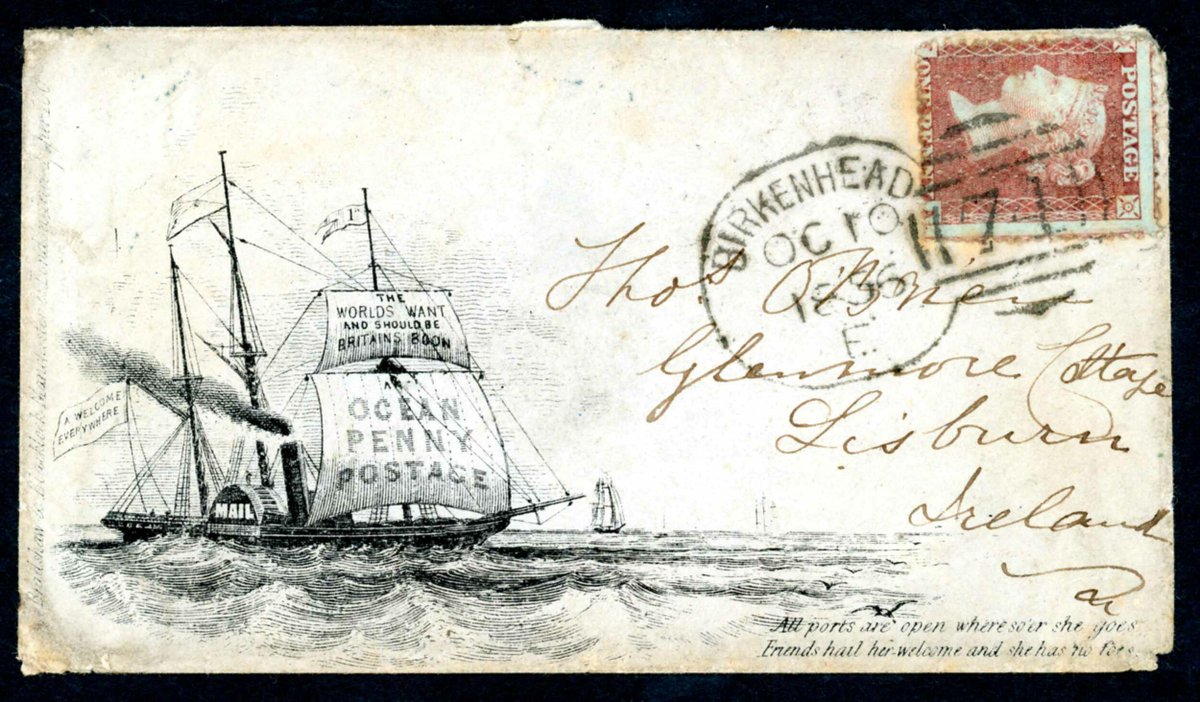 POSTAGE
ONE PENNY
BIRKENHEAD
OCT 10
1856
E
THE
WORLDS WANT
AND SHOULD BE
BRITAINS BOON
AN
OCEAN
PENNY
POSTAGE
A WELCOME
EVERYWHERE
MAIL
Thos. O'Brien
Glenmore Cottage
Lisburn
Ireland
All ports are open whereso'er she goes
Friends hail her welcome and she has no foes.